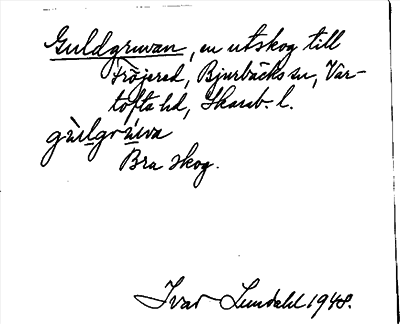 Guldgruvan, en utskog till
Fröjered, Bjurbäcks sn, Var-
tofta hd, Skarab. l.
Bra skog.
Ivar Lundahl 1948.